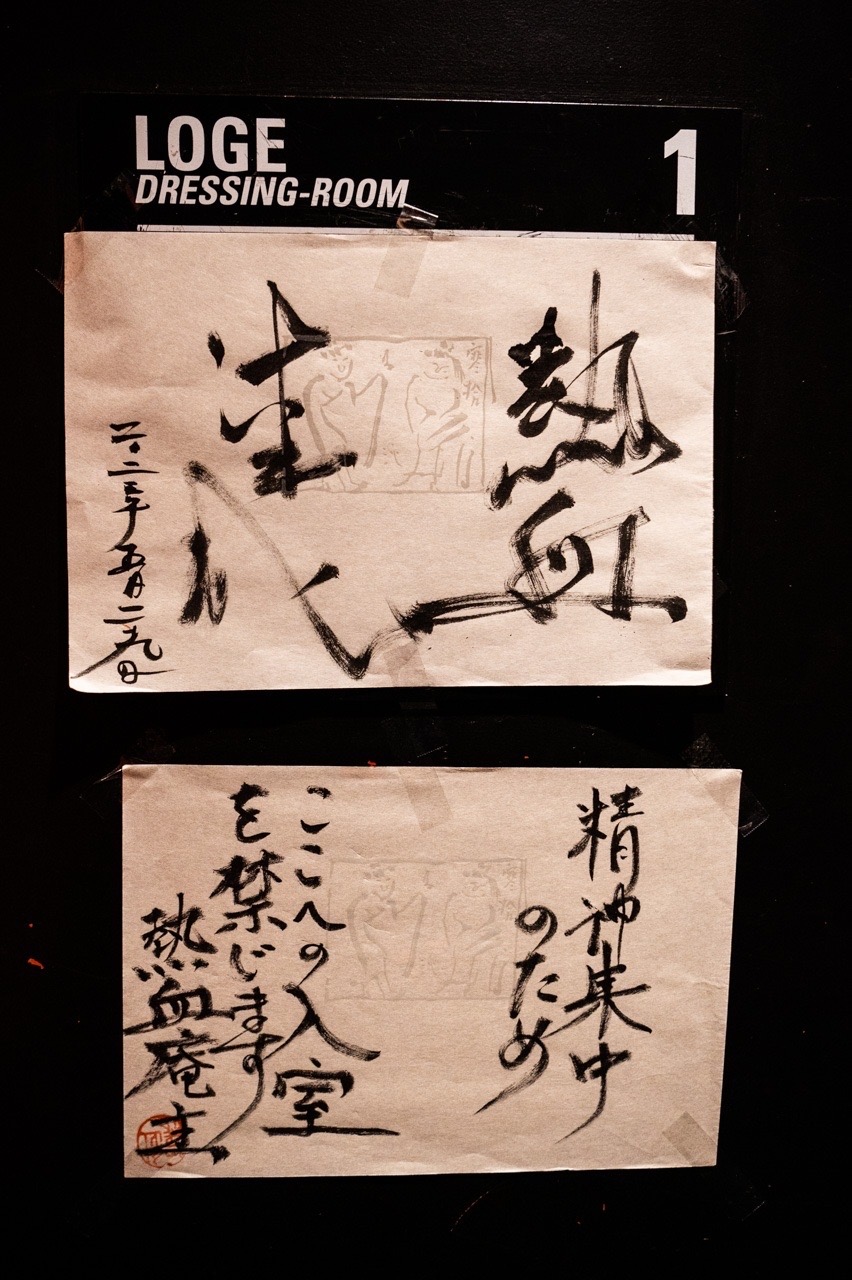 LOGE
DRESSING-ROOM
1
熱血
二〇二三年五月二十九日
寒拾
精神集中
のため
ここへの入室
を禁じます
熱血庵主
寒拾